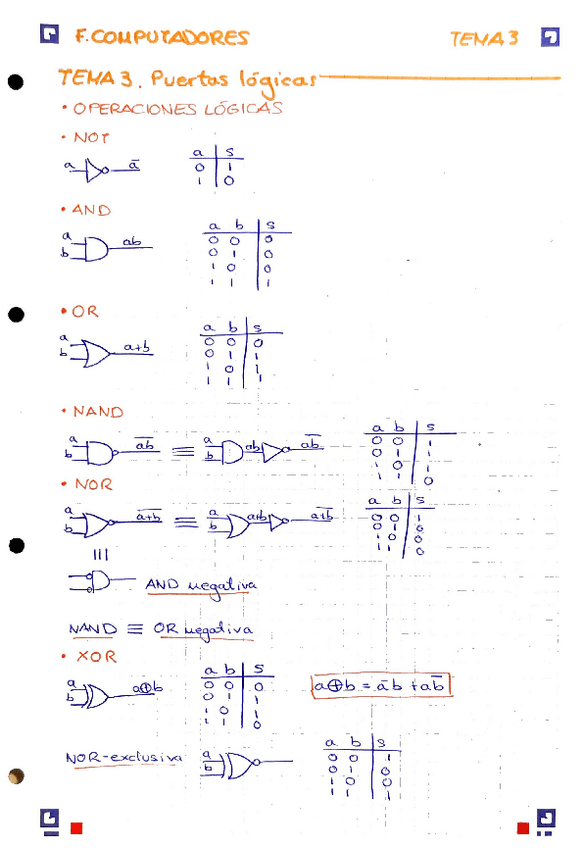 F. COMPUTADORES TEMA 3
TEMA 3. Puertas lógicas
• OPERACIONES LÓGICAS
• NOT
a ā
a s
0 1
1 0
• AND
a b ab
a b s
0 0 0
0 1 0
1 0 0
1 1 1
• OR
a b a+b
a b s
0 0 0
0 1 1
1 0 1
1 1 1
• NAND
a b a̅b̅ ≡ a b ab a̅b̅
a b s
0 0 1
0 1 1
1 0 1
1 1 0
• NOR
a b a̅+̅b̅ ≡ a b a+b a̅+̅b̅
a b s
0 0 1
0 1 0
1 0 0
1 1 0
≡
AND negativa
NAND ≡ OR negativa
• XOR
a b a⊕b
a b s
0 0 0
0 1 1
1 0 1
1 1 0
a⊕b = āb + ab̄
NOR-exclusiva a b
a b s
0 0 1
0 1 0
1 0 0
1 1 1